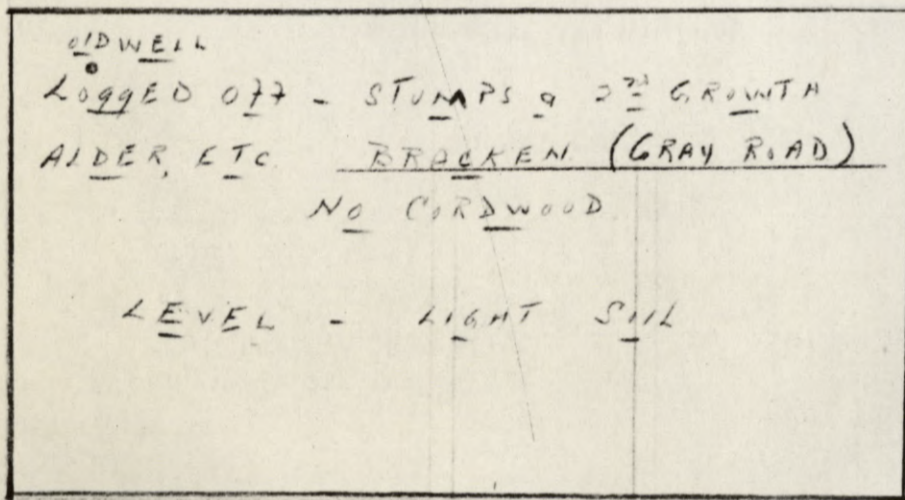 OLD WELL
LOggED OFF - STUMPS & 2ND GROWTH
ALDER, ETC. BRACKEN (GRAY ROAD)
NO CORDWOOD
LEVEL - LIGHT SOIL